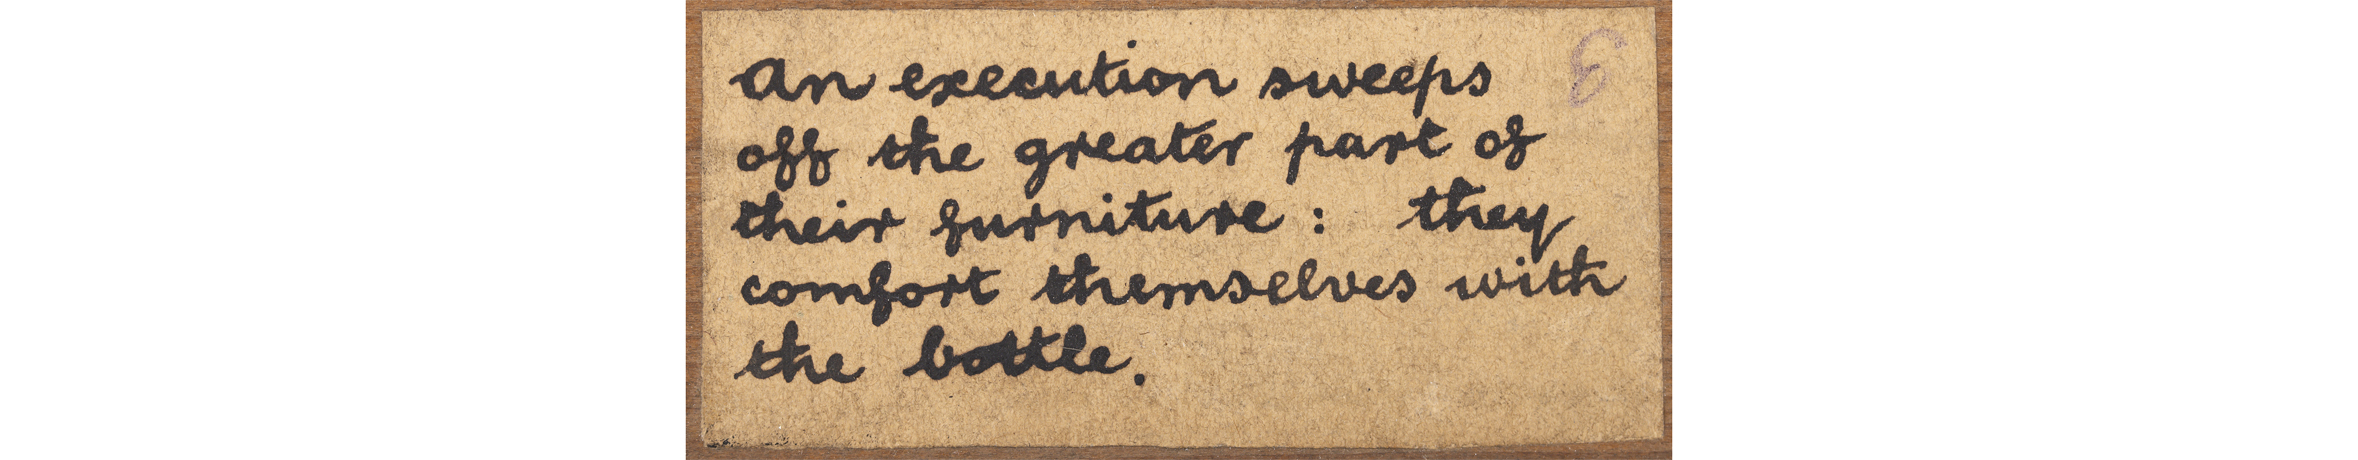 An execution sweeps
off the greater part of
their furniture : they
comfort themselves with
the bottle.